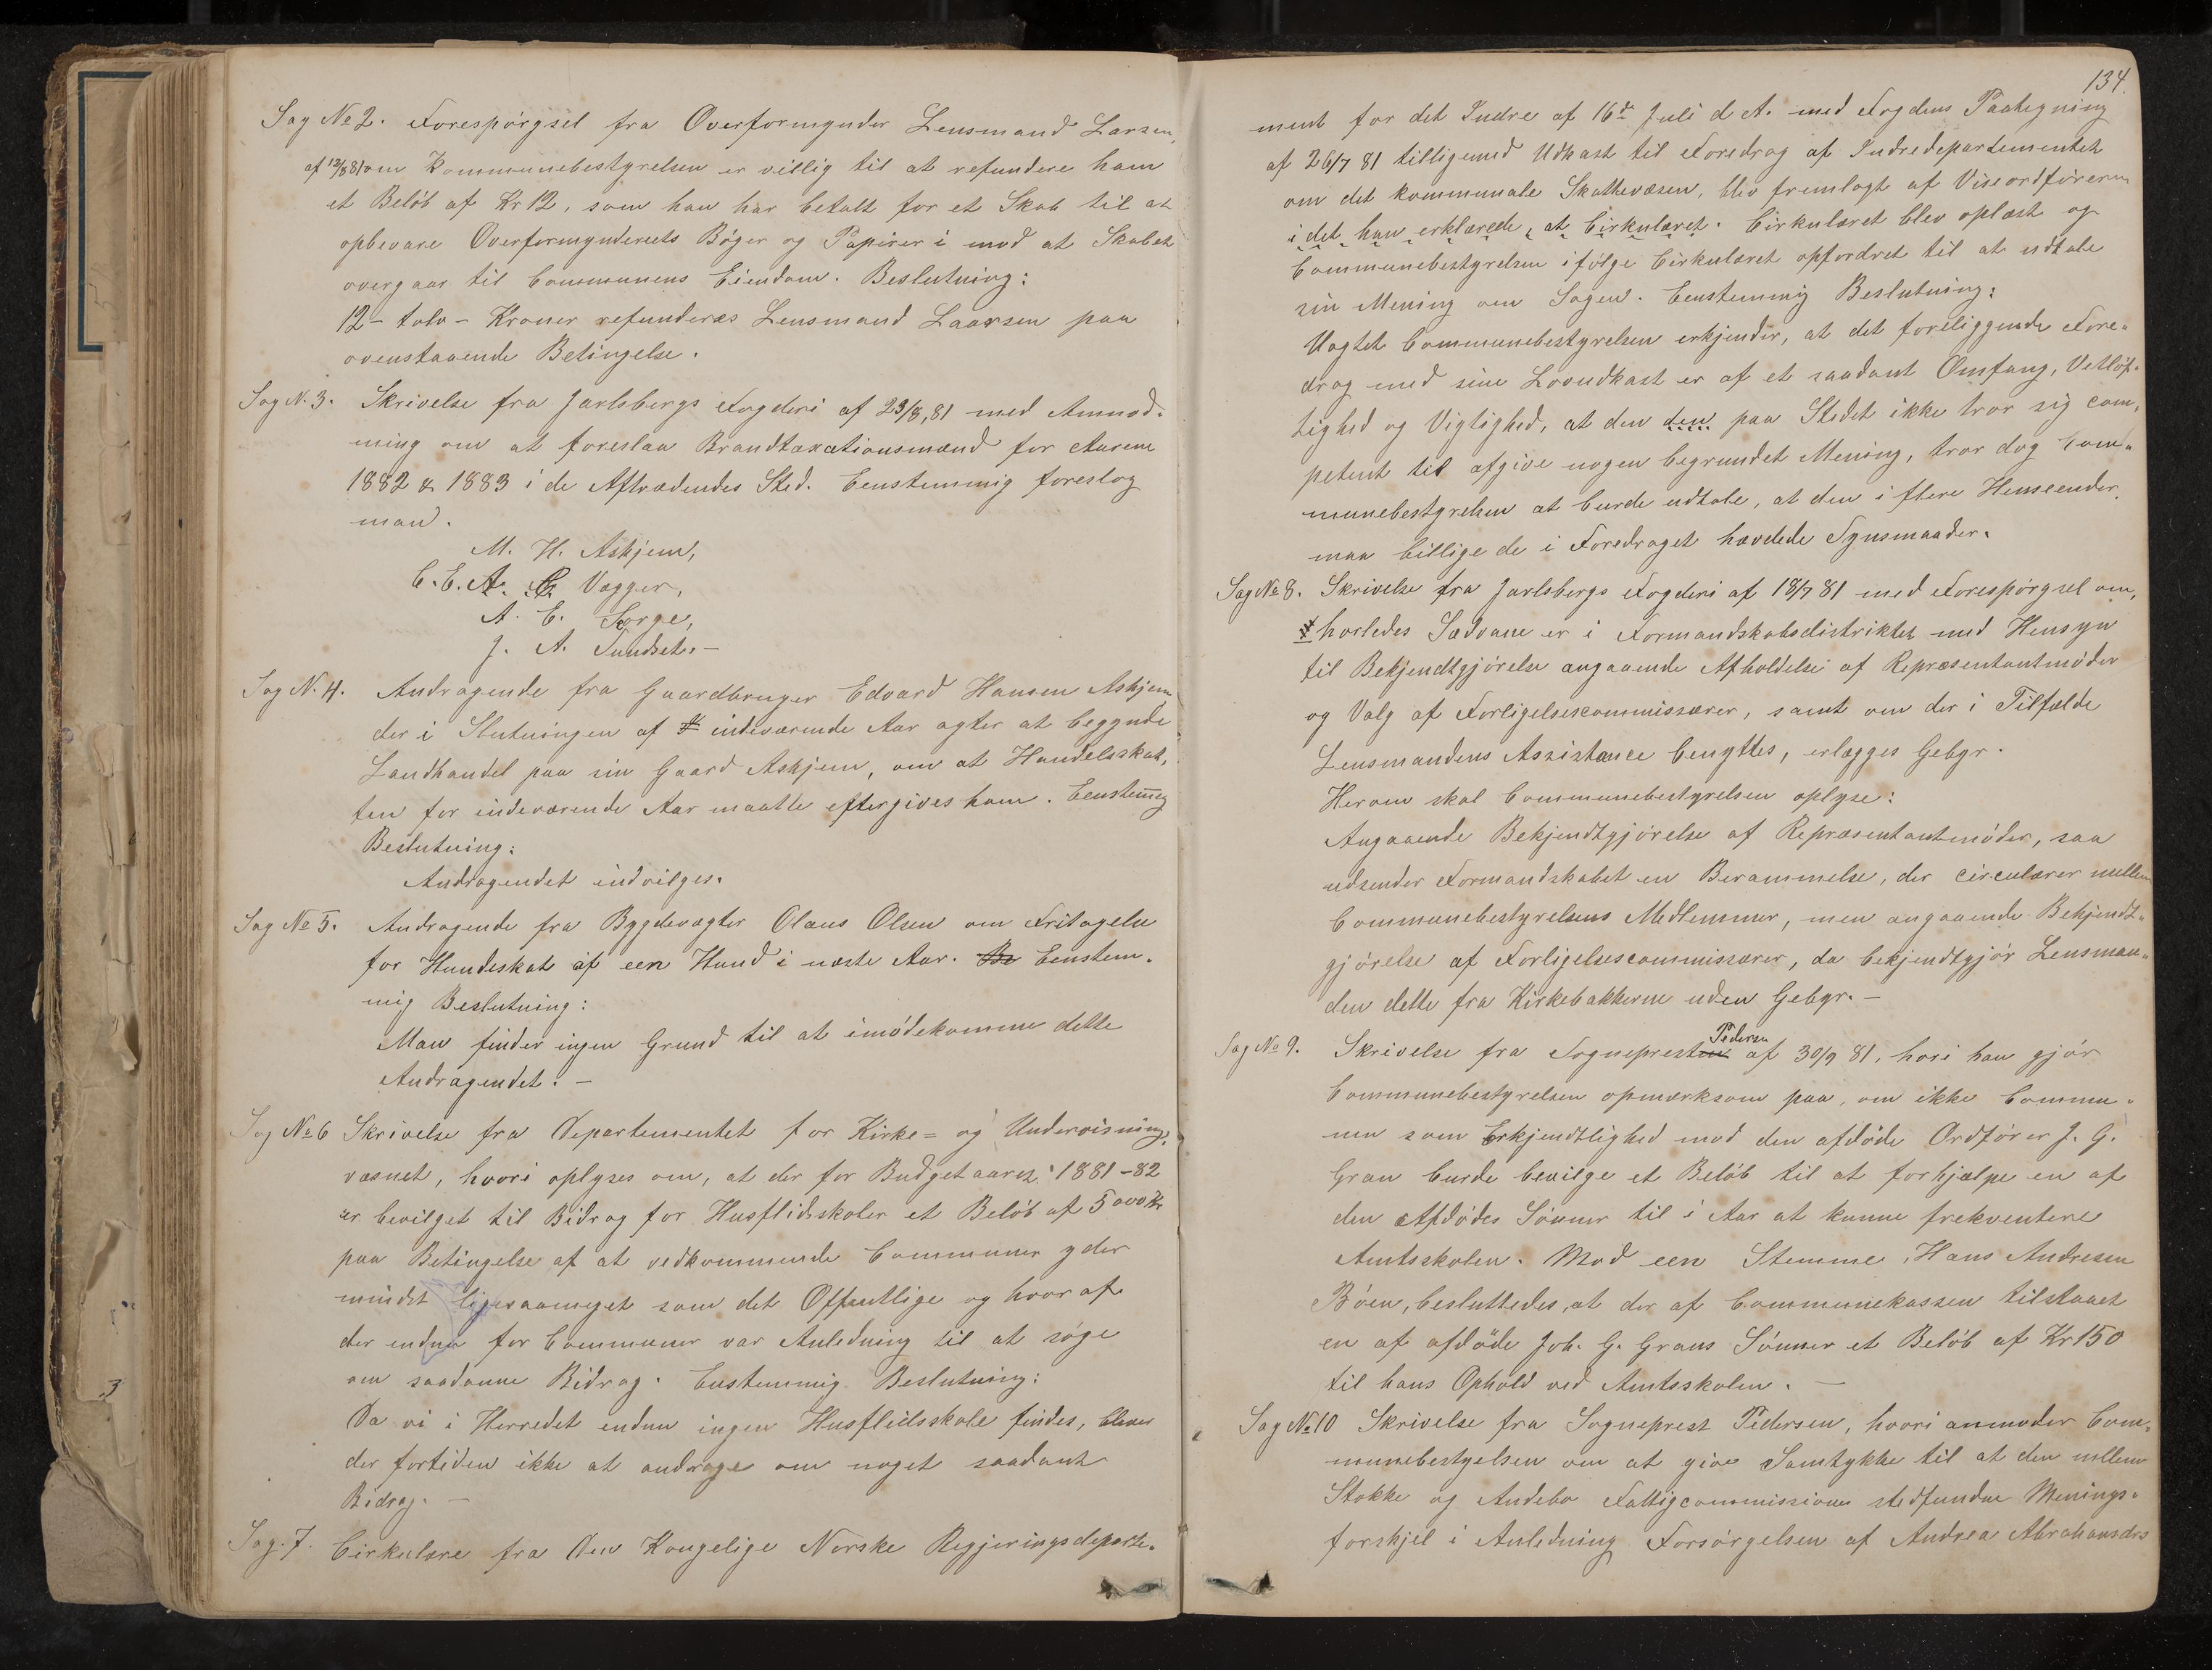 Sag No 2. Forespørgsel fra Overformynder Lensmand Larsen,
af 12/8 81 om Kommunebestyrelsen er villig til at refundere ham
et Beløb af Kr 12, som han har betalt for et Skab til at
opbevare Overformynderiets Bøger og Papirer i mod at Skabet
overgaar til Communens Eiendom. Beslutning:
12 - tolv - Kroner refunderes Lensmand Laarsen paa
ovenstaaende Betingelse.
Sag N. 3. Skrivelse fra Jarlsbergs Fogderi af 23/8, 81 med Anmod-
ning om at foreslaa Brandtaxationsmænd for Aarene
1882 & 1883 i de Aftrædendes Sted. Eenstemmig foreslog
man.
M. H. Askjem,
C. E. A. Vegger,
A. E. Sørge,
J. A. Sundset. -
Sag N. 4. Andragende fra Gaardbruger Edvard Hansen Askjem
der i Slutningen af indeværende Aar agter at begynde
Landhandel paa sin Gaard Askjem, om at Handelsskat,
ten for indeværende Aar maatte eftergives ham. Eenstemmig
Beslutning:
Andragendet indvilges.
Sag No 5. Andragende fra Bygdevægter Olaus Olsen om Fritagelse
for Hundeskat af een Hund i næste Aar. Be Eenstem-
mig Beslutning:
Man finder ingen Grund til at imødekomme dette
Andragendet. -
Sag No 6 Skrivelse fra Departementet for Kirke= og Undervisnings-
væsnet, hvori oplyses om, at der for Budgetaaret 1881-82
er bevilget til Bidrag for Husflidsskoler et Beløb af 5000 Kr
paa Betingelse af at vedkommende Communer yder
mindst ligesaameget som det Offentlige og hvoraf
der endnu for Communer var Anledning til at søge
om saadanne Bidrag. Eenstemmig Beslutning:
Da vi i Herredet endnu ingen Husflidsskole findes, bliver
der fortiden ikke at andrage om noget saadant
Bidrag. -
Sag. 7. Cirkulære fra Den Kongelige Norske Regjeringsdeparte-
134.
ment for det Indre af 16de Juli d. A. med Fogdens Paategning
af 26/7 81 tilligemed Udkast til Foredrag af Indredepartementet
om det kommunale Skattevæsen, blev fremlagt af Viseordføreren
i det han erklærede, at Cirkulæret. Cirkulæret blev oplæst og
Communebestyrelsen ifølge Cirkulæret opfordret til at udtale
sin Mening om Sagen. Eenstemmig Beslutning:
Uagtet Communebestyrelsen erkjender, at det foreliggende Fore-
drag med sine Lovudkast er af et saadant Omfang, Vetløf-
tighed og Vigtighed, at den den paa Stedet ikke tror sig com-
petent til afgive nogen begrundet Mening, tror dog Com-
munebestyrelsen at burde udtale, at den i flere Henseender,
maa billige de i Foredraget hævdede Synsmaader.
Sag No 8. Skrivelse fra Jarlsbergs Fogderi af 18/7 81 med Forespørgsel om,
horledes Sædvane er i Formandskabsdistriktet med Hensyn
til Bekjendtgjørelse angaaende Afholdelse af Repræsentantmøder
og Valg af Forligelsescommissærer, samt om der i Tilfælde
Lensmandens Assistance benyttes, erlægges Gebyr.
Herom skal Communebestyrelsen oplyse:
Angaaende Bekjendtgjørelse af Repræsentantmøder, saa
udsender Formandskabet en Berammelse, der circulærer mellem
Communebestyrelsens Medlemmer, men angaaende Bekjendt-
gjørelse af Forligelsescommissærer, da bekjendtgjør Lensman-
den dette fra Kirkebakkerne uden Gebyr. -
Sag No 9. Skrivelse fra Sognepresten Pedersen af 30/9 81, hori han gjør
Communebestyrelsen opmærksom paa, om ikke Commu-
nen som Erkjendtlighed mod den afdøde Ordfører J. G.
Gran burde bevilge et Beløb til at forhjælpe en af
den Afdødes Sønner til i Aar at kunne frekventere
Amtsskolen. Mod een Stemme, Hans Andresen
Bøen, besluttedes, at der af Communekassen tilstaaet
en af afdøde Joh. G. Grans Sønner et Beløb af Kr 150
til hans Ophold ved Amtsskolen. -
Sag No 10 Skrivelse fra Sogneprest Pedersen, hvori anmoder Com-
munebestyelsen om at give Samtykke til at den mellem
Stokke og Andebo Fattigcommissioner stedfundne Menings-
forskjel i Anledning Forsørgelsen af Andrea Abrahamsdtr